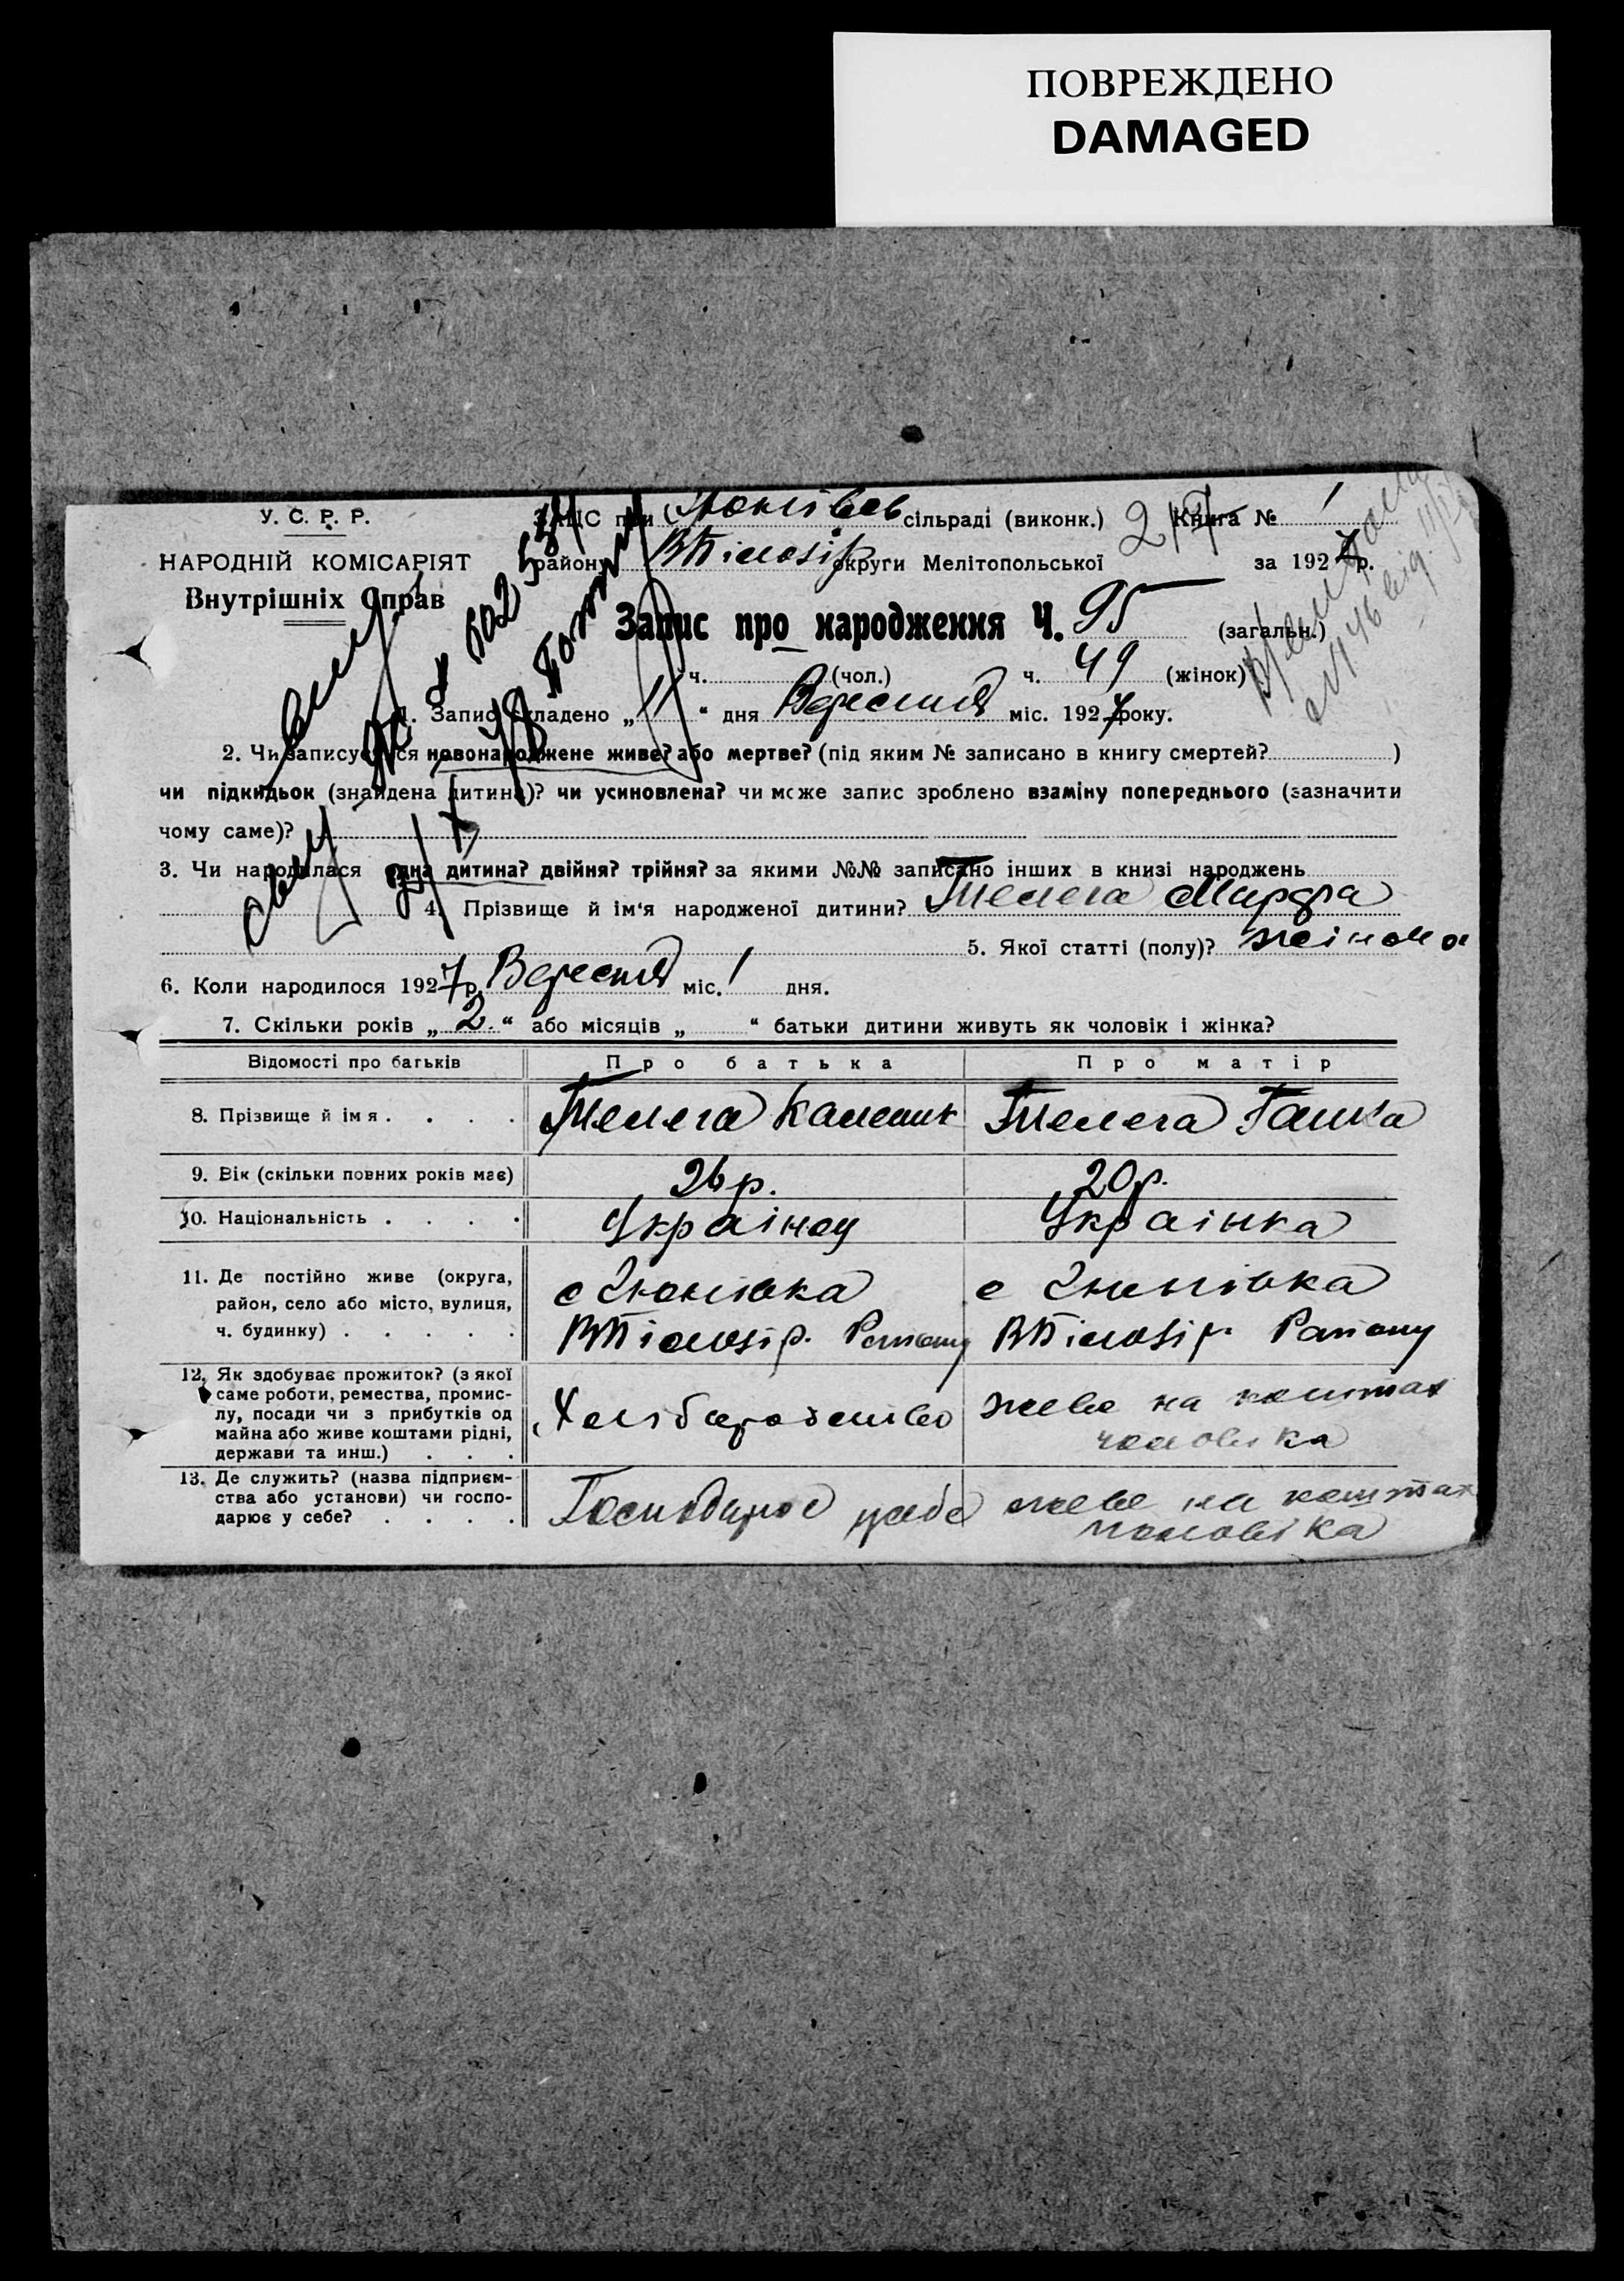 ПОВРЕЖДЕНО
DAMAGED
У. С. Р. Р.
НАРОДНІЙ КОМІСАРІЯТ
Внутрішніх Справ
ЗАЦС при сільраді (виконк.) Книга № 1
району округи Мелітопольської за 1927 р.
Запис про народження Ч. 95 (загальн.)
ч. (чол.) ч. 49 (жінок)
1. Запис складено „ 11 “ дня Вересня міс. 1927 року.
2. Чи записується новонароджене живе? або мертве? (під яким № записано в книгу смертей? )
чи підкидьок (знайдена дитина)? чи усиновлена? чи може запис зроблено взаміну попереднього (зазначити
чому саме)?
3. Чи народилася одна дитина? двійня? трійня? за якими №№ записано інших в книзі народжень
4. Прізвище й ім'я народженої дитини? Телега Марфа
5. Якої статті (полу)? жіноча
6. Коли народилося 1927 р. Вересня міс. 1 дня.
7. Скільки років „ 2 “ або місяців „ “ батьки дитини живуть як чоловік і жінка?
Відомості про батьків Про батька Про матір
8. Прізвище й імя . . . . Телега Каленик Телега Ганна
9. Вік (скільки повних років має) 26 р. 20 р.
10. Національність . . . . Українец Українка
11. Де постійно живе (округа,
район, село або місто, вулиця,
ч. будинку) . . . . .
12. Як здобуває прожиток? (з якої
саме роботи, ремества, промис-
лу, посади чи з прибутків од
майна або живе коштами рідні,
держави та инш.) . . .
Хліборобство
живе на коштах
чоловіка
13. Де служить? (назва підприєм-
ства або установи) чи госпо-
дарює у себе? . . . .
Господарює у себе
живе на коштах
чоловіка